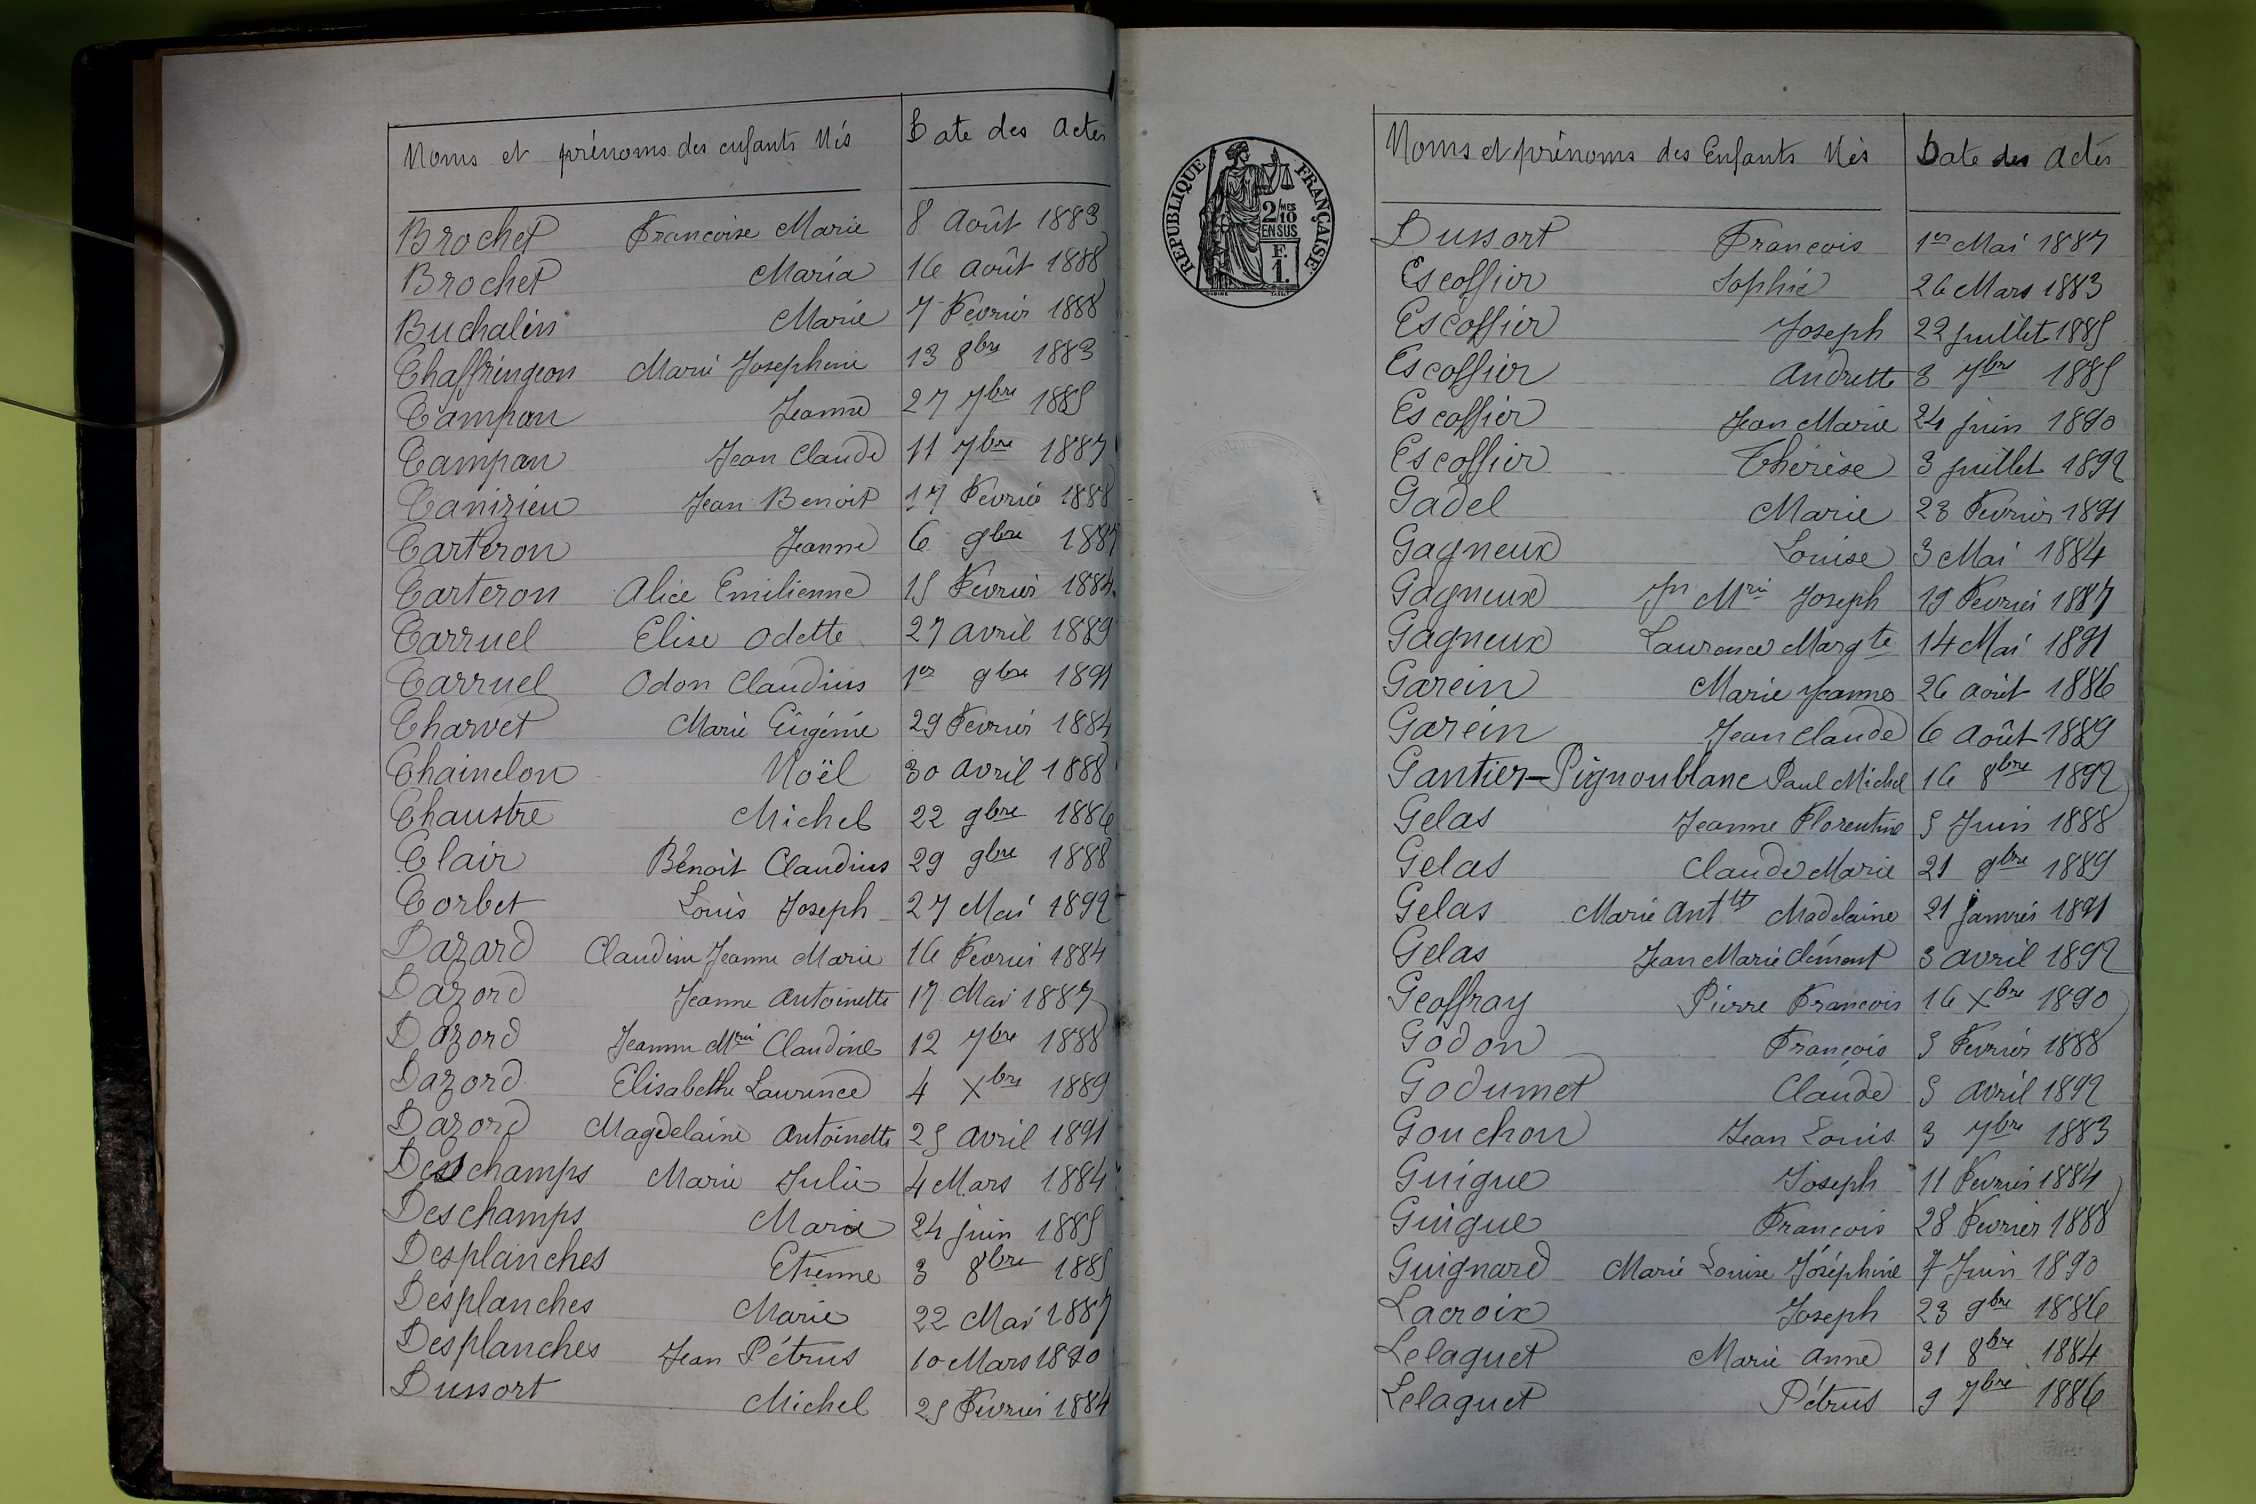 Noms et prénoms des enfants Nés Date des actes
Brochet Francoise Marie 8 Août 1883
Brochet Maria 16 Août 1888
Buchalin Marie 7 Février 1888
Chaffringeon Marie Josephine 13 8bre 1883
Campan Jeanne 27 7bre 1885
Campan Jean Claude 11 7bre 1887
Canizieu Jean Benoit 17 Février 1888
Carteron Jeanne 6 9bre 1887
Carteron Alice Emilienne 15 Février 1884
Carruel Elise Odette 27 avril 1889
Carruel Odon Claudius 1er 9bre 1891
Charvet Marie Eugénie 29 Février 1884
Chainelon Noël 30 avril 1888
Chaustre Michel 22 9bre 1886
Clair Bénoit Claudius 29 9bre 1888
Corbet Louis Joseph 27 Mai 1892
Dazard Claudine Jeanne Marie 16 Février 1884
Dazord Jeanne Antoinette 17 Mai 1887
Dazord Jeanne Mrie Claudine 12 7bre 1888
Dazord Elisabethe Laurence 4 Xbre 1889
Dazord Magdelaine Antoinette 25 avril 1891
Deschamps Marie Julie 4 Mars 1884
Deschamps Marie 24 juin 1885
Desplanches Etienne 3 8bre 1885
Desplanches Marie 22 Mai 1887
Desplanches Jean Pétrus 10 Mars 1890
Dussort Michel 25 Février 1884
REPUBLIQUE FRANÇAISE
2/10MES
EN SUS
F.
1.
Noms et prénoms des Enfants Nés Date des actes
Dussort Francois 1er Mai 1887
Escoffier Sophie 26 Mars 1883
Escoffier Joseph 22 juillet 1885
Escoffier Andrette 3 7bre 1885
Escoffier Jean Marie 24 juin 1890
Escoffier Thérèse 3 juillet 1892
Gadel Marie 23 Fevrier 1891
Gagneux Louise 3 Mai 1884
Gagneux Jn Mrie Joseph 19 Fevrier 1887
Gagneux Laurence Margte 14 Mai 1891
Garein Marie Jeanne 26 août 1886
Garein Jean Claude 6 Août 1889
Gantier-Pignoublanc Paul Michel 16 8bre 1892
Gelas Jeanne Florentine 5 Juin 1888
Gelas Claude Marie 21 9bre 1889
Gelas Marie Anttte Madelaine 21 janvier 1891
Gelas Jean Marie Clément 3 avril 1892
Geoffray Pierre Francois 16 Xbre 1890
Godon François 5 Fevrier 1888
Godumet Claude 5 avril 1892
Gouchon Jean Louis 3 7bre 1883
Guigue Joseph 11 Fevrier 1884
Guigue Francois 28 Fevrier 1888
Guignard Marie Louise Joséphine 7 Juin 1890
Lacroix Joseph 23 9bre 1886
Lelaguet Marie Anne 31 8bre 1884
Lelaguet Pétrus 9 7bre 1886